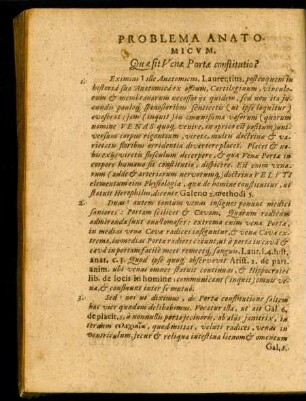 PROBLEMA ANATO-
MICVM.
Quæ sit Venæ Portæ constitutio?
1. Eximius ille Anatomicus, Laurentius, postquam in
historia sua Anatomica ex ossium, Cartilaginum, vinculo-
rum & membranarum
evasisset: jam (inquit) in vasorum (quorum
nomine VENAS quoq; venire,
versum corpus rigentium, virete, multo doctrinæ & va-
rietatis floribus arridentia divertere placet. Placet & no-
bis ex ejus flosculum decerpere, & quæ Venæ Portæ in
corpore humano sit constitutio, dispicere. Est enim vena-
rum (adde & arteriarum nervorumq;) doctrina VELUTI
elementum in Physiologia, quæ de homine constituitur, ut
statuit Herophilus, docente Galeno 5. method: 5.
2. Duas autem tantum venas insignes ponunt medici
saniores: Portam scilicet & Cavam. Quarum radicum
admirandi sunt anastomoses: extrema enim venæ Portæ,
in medias venæ Cavæ radices & venæ Cavæ extre-
ma, in medias Portæ radices ut à porta in cavã & cavâ
in portam facile meet remeetq; sanguis. Laur. l. 4. hist.
anat. c. 3. Quod ipse quoq; observavit Arist. 3. de part.
anim. ubi venas omnes statuit continuas, & Hippocrates
lib. de locis in homine communicant (inquit) omnes ve-
næ, & confluunt inter se mutuo.
3. Sed nos ut diximus, de Portæ constitutione saltem
hac vice quædam delibabimus. Vocatur ista, ut ait Gal. 6.
de placit. à nonnullis porta jecinoris, ab aliis janitrix, in-
terdum quod mittat, veluti radices, venas in
ventriculum, jecur & reliqua intestina lienem & omentum
Gal.